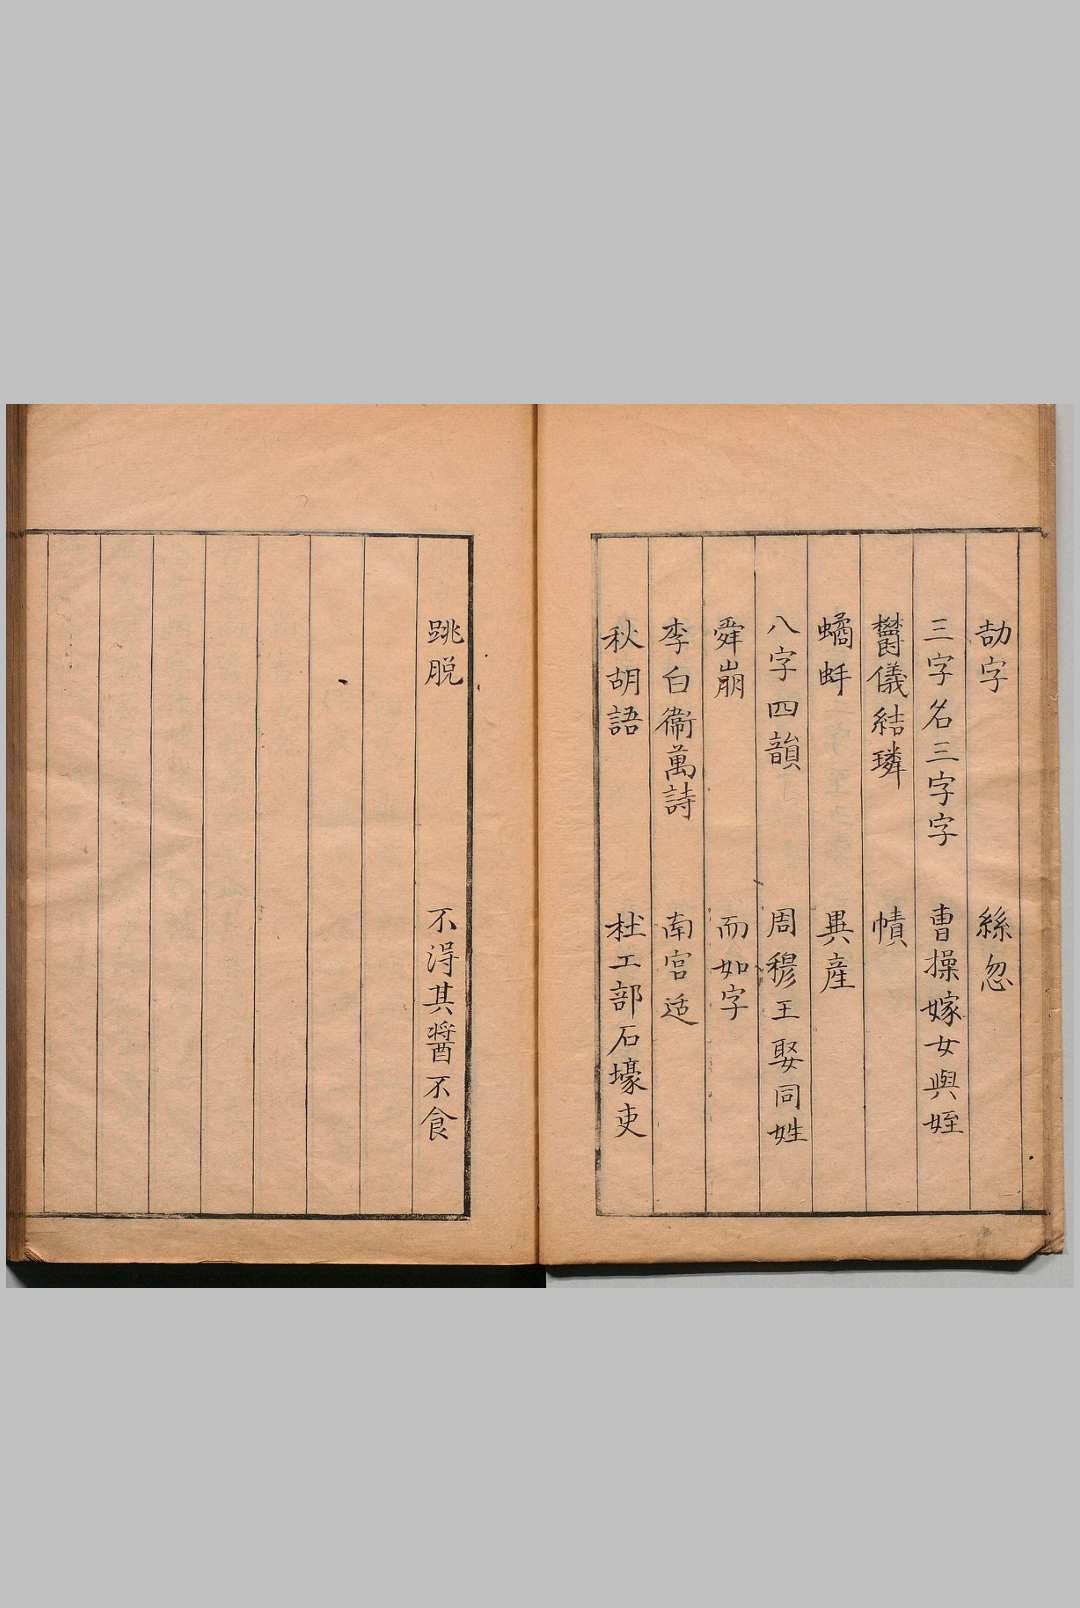 劼字 絲忽
三字名三字字 曹操嫁女與姪
鬱儀結璘 幘
蟠蚌 異產
八字四韻 周穆王娶同姓
舜崩 而如字
李白衛萬詩 南宮适
秋胡語 杜工部石壕吏
跳脫 不淂其醬不食